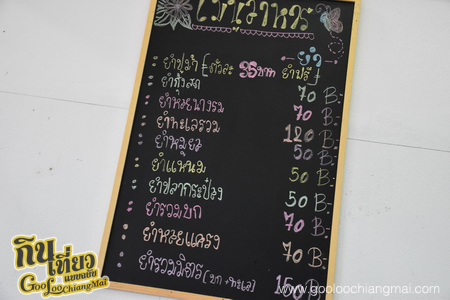 เมนูอาหาร
ยำ
ยำปูม้า (ตัวละ 35 บาท ยำฟรี)
ยำกุ้งสด 70 B.-
ยำหอยนางรม 70 B.-
ยำทะเลรวม 120 B.-
ยำหมูยอ 50 B.-
ยำแหนม 50 B.-
ยำปลากระป๋อง 50 B.-
ยำรวมบก 70 B.-
ยำหอยแครง 70 B.-
ยำรวมมิตร (บก+ทะเล) 150 B.-
กินเที่ยวแบบฉบับ
GooLooChiangMai
www.gooloochiangmai.com